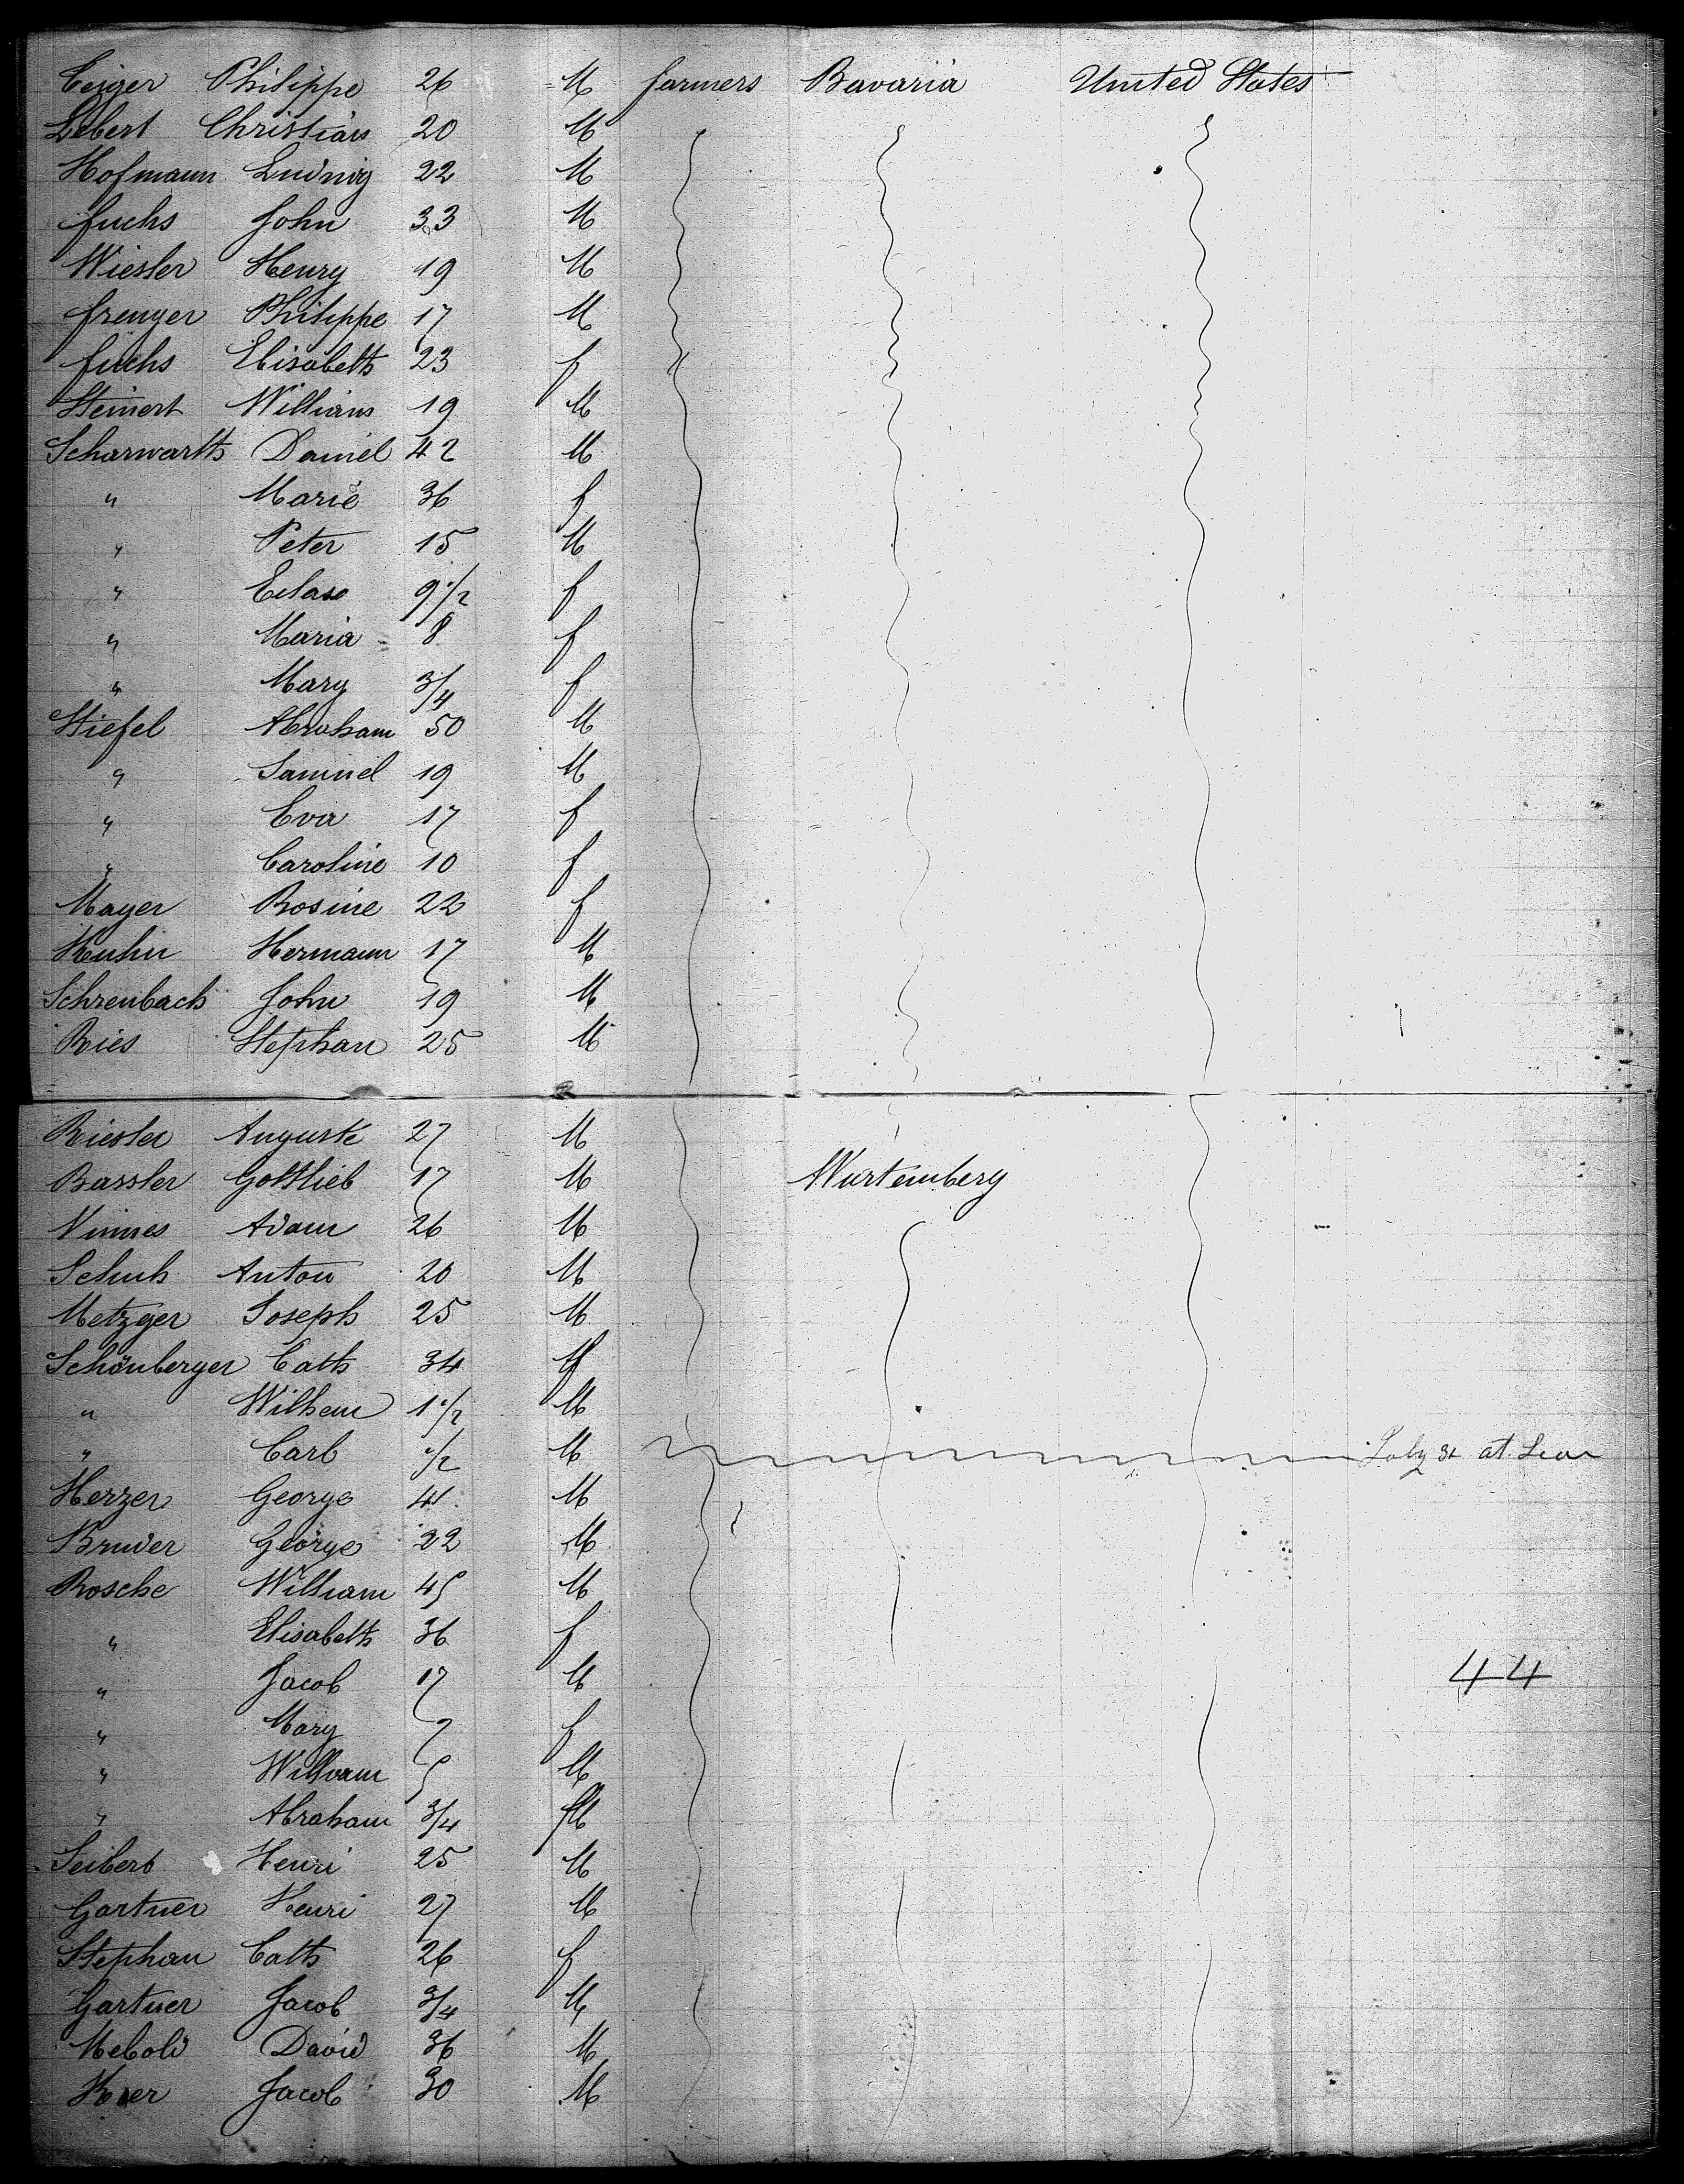 Geiger Philippe 26 M farmers Bavaria United States
Lebert Christian 20 M
Hofmann Ludwig 22 M
fuchs John 33 M
Wiesler Henry 19 M
frenger Philippe 17 M
fuchs Elisabeth 23 f
Steinert William 19 M
Scharwarth Daniel 42 M
" Marie 36 f
" Peter 15 M
" 9 1/2 f
" Maria 8 f
" Mary 3/4 f
Stiefel Abraham 50 M
" Samuel 19 M
" Eva 17 f
" Caroline 10 f
Mayer Rosine 22 f
Kuhn Hermann 17 M
Schrenbach John 19 M
Ries Stephan 25 M
Riesler Auguste 27 M
Bassler Gottlieb 17 M Wurtemberg
Vinnes Adam 26 M
Schuh Anton 20 M
Metzger Joseph 25 M
Schönberger Cath 34 f
" Wilhem 1 1/2 M
" Carl 1/2 M July 31 at Sea
Herzer George 41 M
Bruder George 22 M
Rosche William 45 M
" Elisabeth 36 f
" Jacob 17 M 44
" Mary 7 f
" William 5 M
" Abraham 3/4 M
Seibert Henri 25 M
Gartner Henri 27 M
Stephan Cath 26 f
Gartner Jacob 3/4 M
Mebold David 36 M
Jacob 30 M